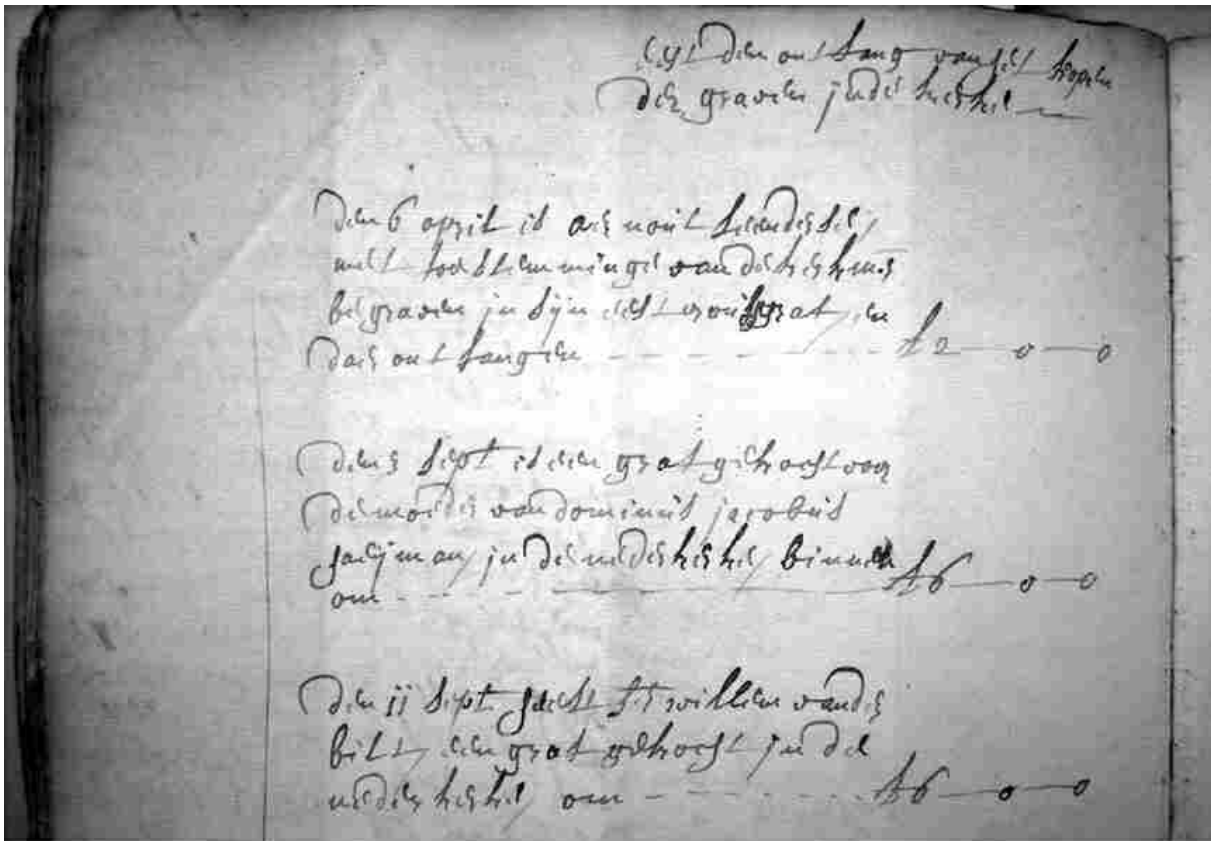 den ontfang van het kopen
der graven inde kerke
den 6 april is aernout leenderse,
met toestemminge van de kerkm.s
begraven in sijn groots graf, en
daer ontfangen - - - - f 2 - 0 - 0
den 5 sept is een graf gekocht voor
de moeder van dominus jacobus
in de nederkerke, binnen
om - - - - f 6 - 0 - 0
den ij sept heeft willem vander
bilt, een graf gekocht in de
nederkerke, om - - - - f 6 - 0 - 0